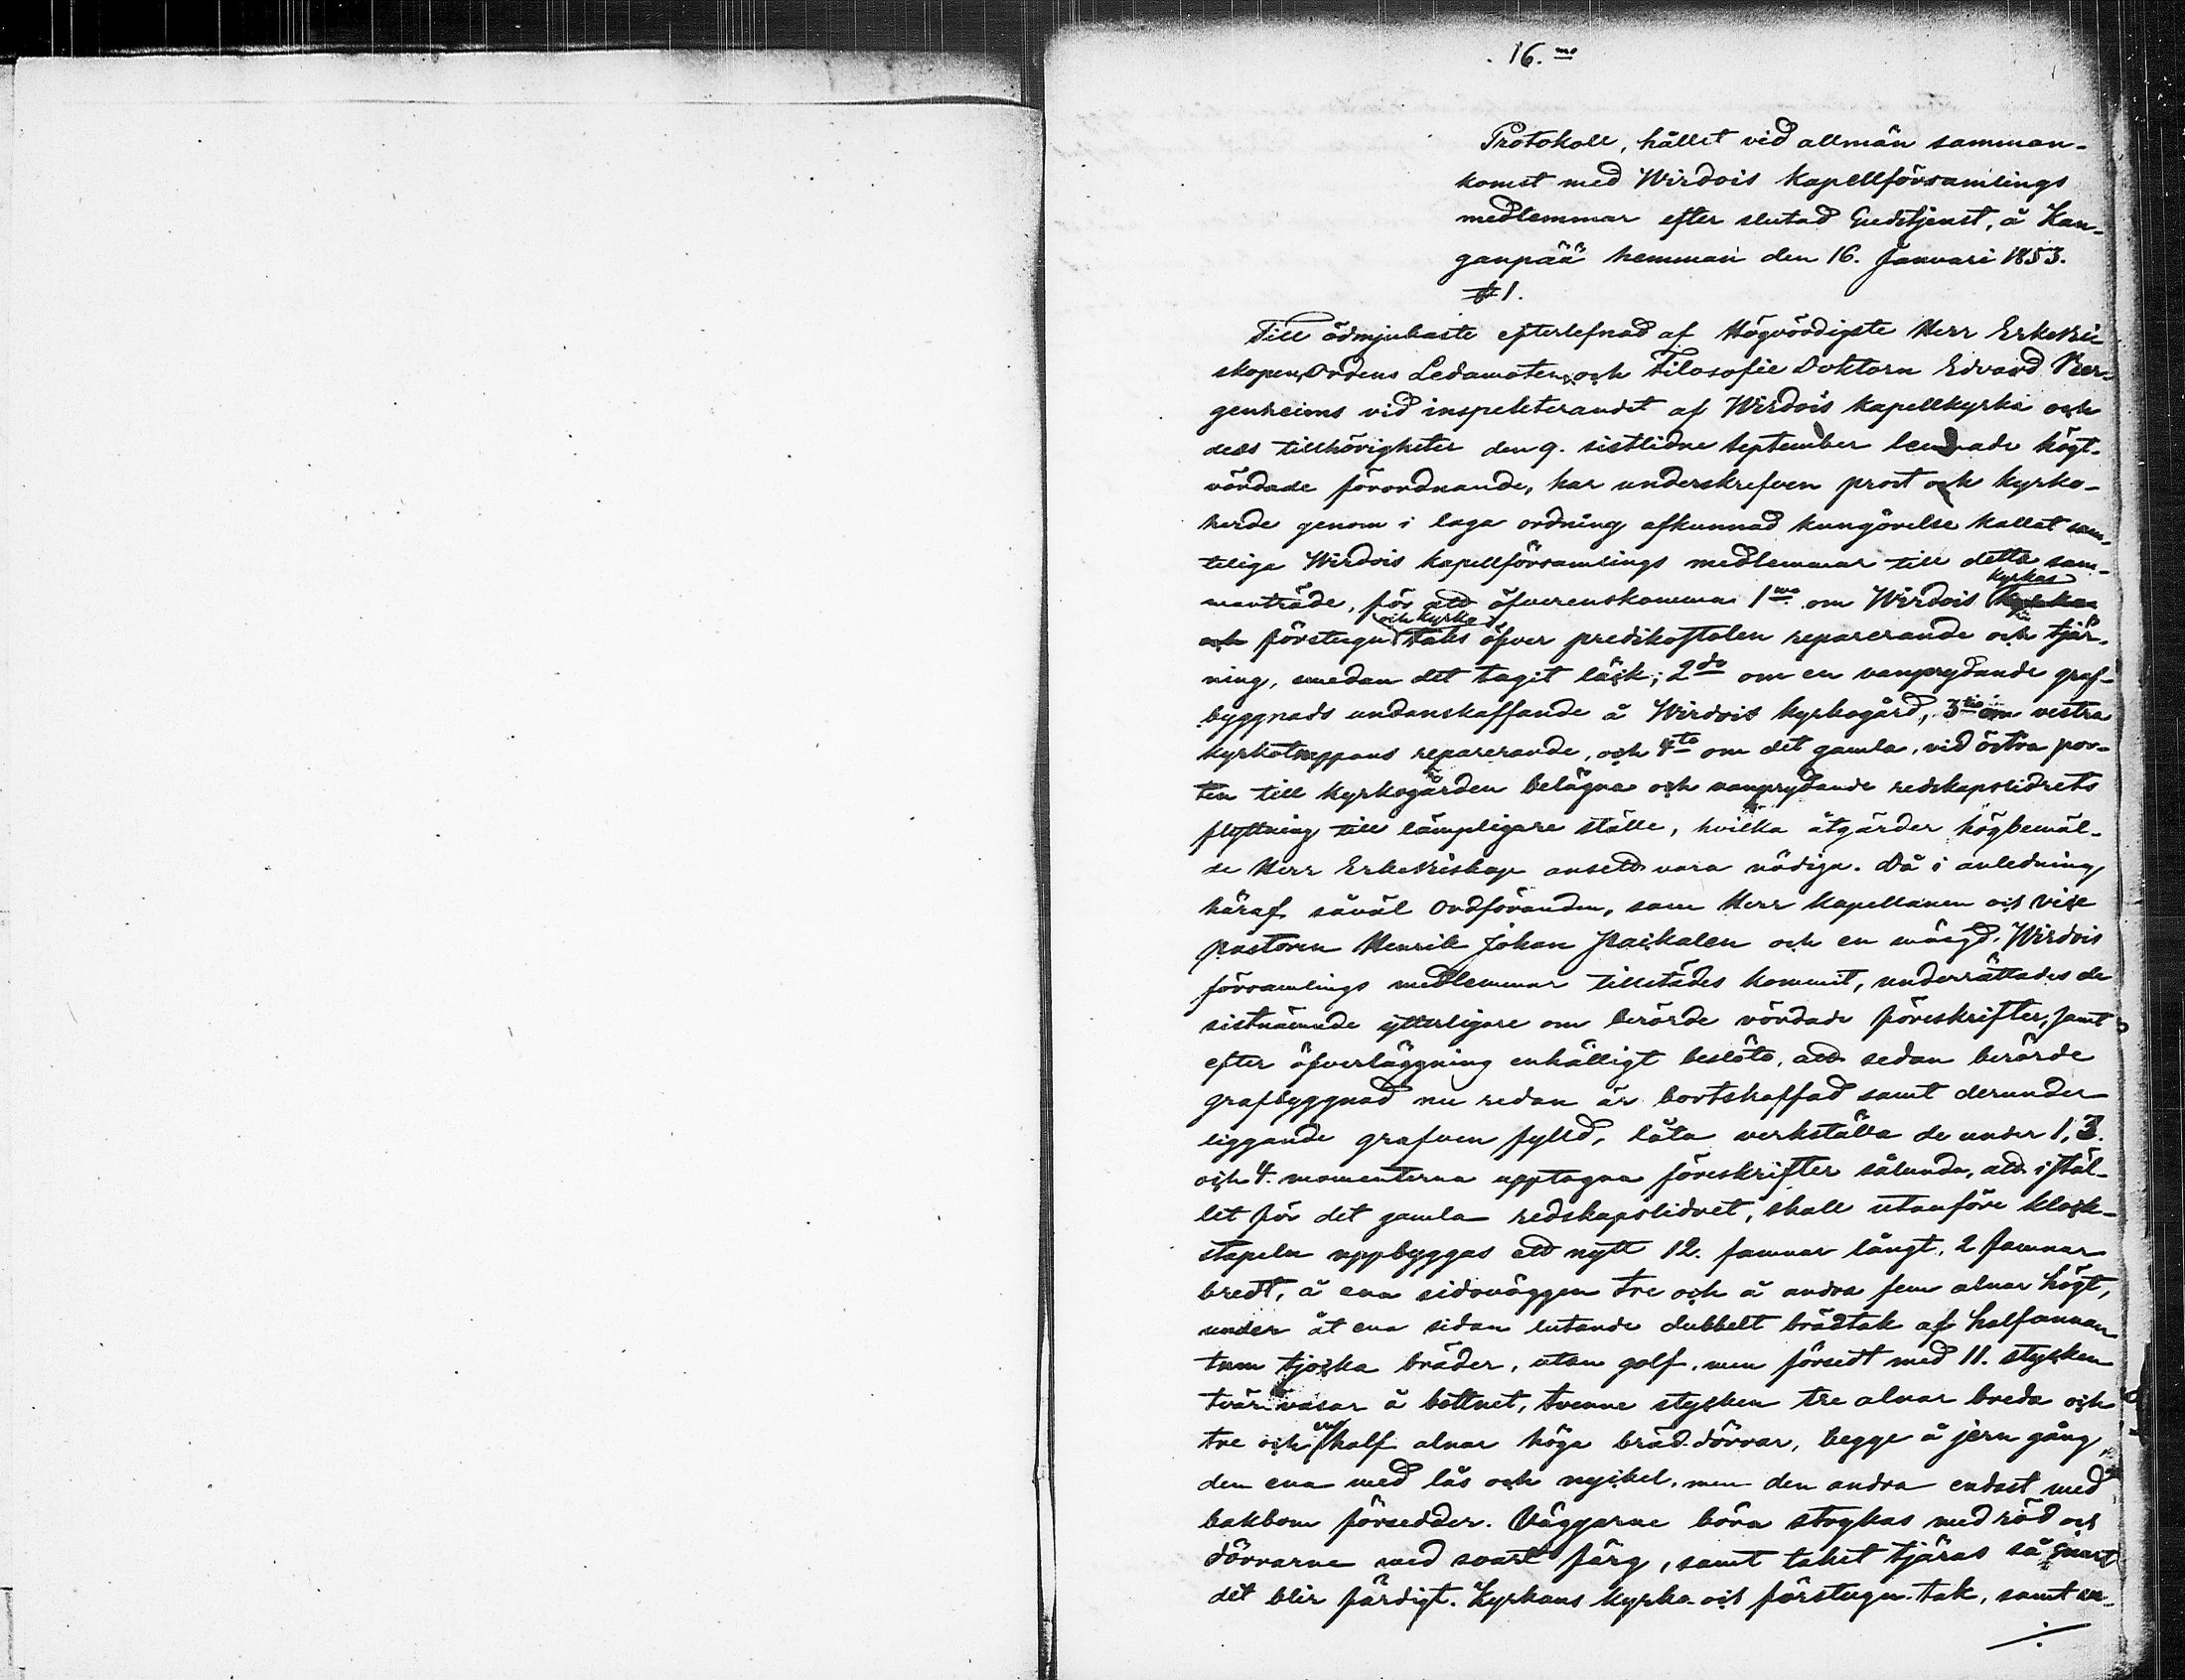 16.mo
Protokoll, hållet vid allmän samman-
komst med Wirdois Kapellförsamlings
medlemmar efter slutad Gudstjenst, å Kan-
ganpää hemman den 16. Januari 1853.
§ 1.
Till ödmjukaste efterlefnad af Högvördigste Herr Erkebi-
skopen, Ordens Ledamoten och Filosofie Doktorn Edvard Ber-
genheims vid inspekterandet af Wirdois Kapellkyrka och
dess tillhörigheter den 9. sistlidne September lemnade högt-
vördade förordnande, har underskrefven prost och kyrko-
herde genom i laga ordning afkunnad kungörelse kallat sam-
teliga Wirdois kapellförsamlings medlemmar till detta sam-
manträde, för att öfverenskomma 1mo om Wirdois kyrkas
förstugu och kyrko taks öfver predikostolen reparerande och tjär-
ning, emedan det tagit läck; 2do om en vanprydande graf-
byggnads undanskaffande å Wirdois kyrkogård, 3tio om vestra
kyrkotrappans reparerande, och 4to om det gamla, vid östra por-
ten till kyrkogården belägna och vanprydande redskapslidrets
flyttning till lämpligare ställe, hvilka åtgärder högbemäl-
de Herr Erkebiskop ansett vara nödiga. Då i anledning
häraf såväl Ordföranden, som Herr Kapellanen och vice
pastoren Henrik Johan och en mängd Wirdois
församlings medlemmar tillstädes kommit, underrättades de
sistnämnde ytterligare om berörde vördade föreskrifter, samt
efter öfverläggning enhälligt beslöto, att sedan berörde
grafbyggnad nu redan är bortskaffad samt derunder
liggande grafven fylld, låta verkställa de under 1, 3.
och 4. momenterna upptagna föreskrifter sålunda, att i stäl-
let för det gamla redskapslidret, skall utanföre klock-
stapeln uppbyggas ett nytt 12. famnar långt, 2 famnar
bredt, å ena sidoväggen tre och å andra fem alnar högt,
under åt ena sidan lutande dubbelt brädtak af halfannan
tum tjocka bräder, utan golf, men försedt med 11. stycken
tvärvasar å bottnet, tvenne stycken tre alnar breda och
tre och en half alnar höga bräd-dörrar, begge å jern gång
den ena med lås och nyckel, men den andra endast med
bakbom försedder. Väggarne böra strykas med röd och
dörrarne med svart färg, samt taket tjäras så snart
det blir färdigt. Kyrkans kyrko och förstugu-tak, samt ve-